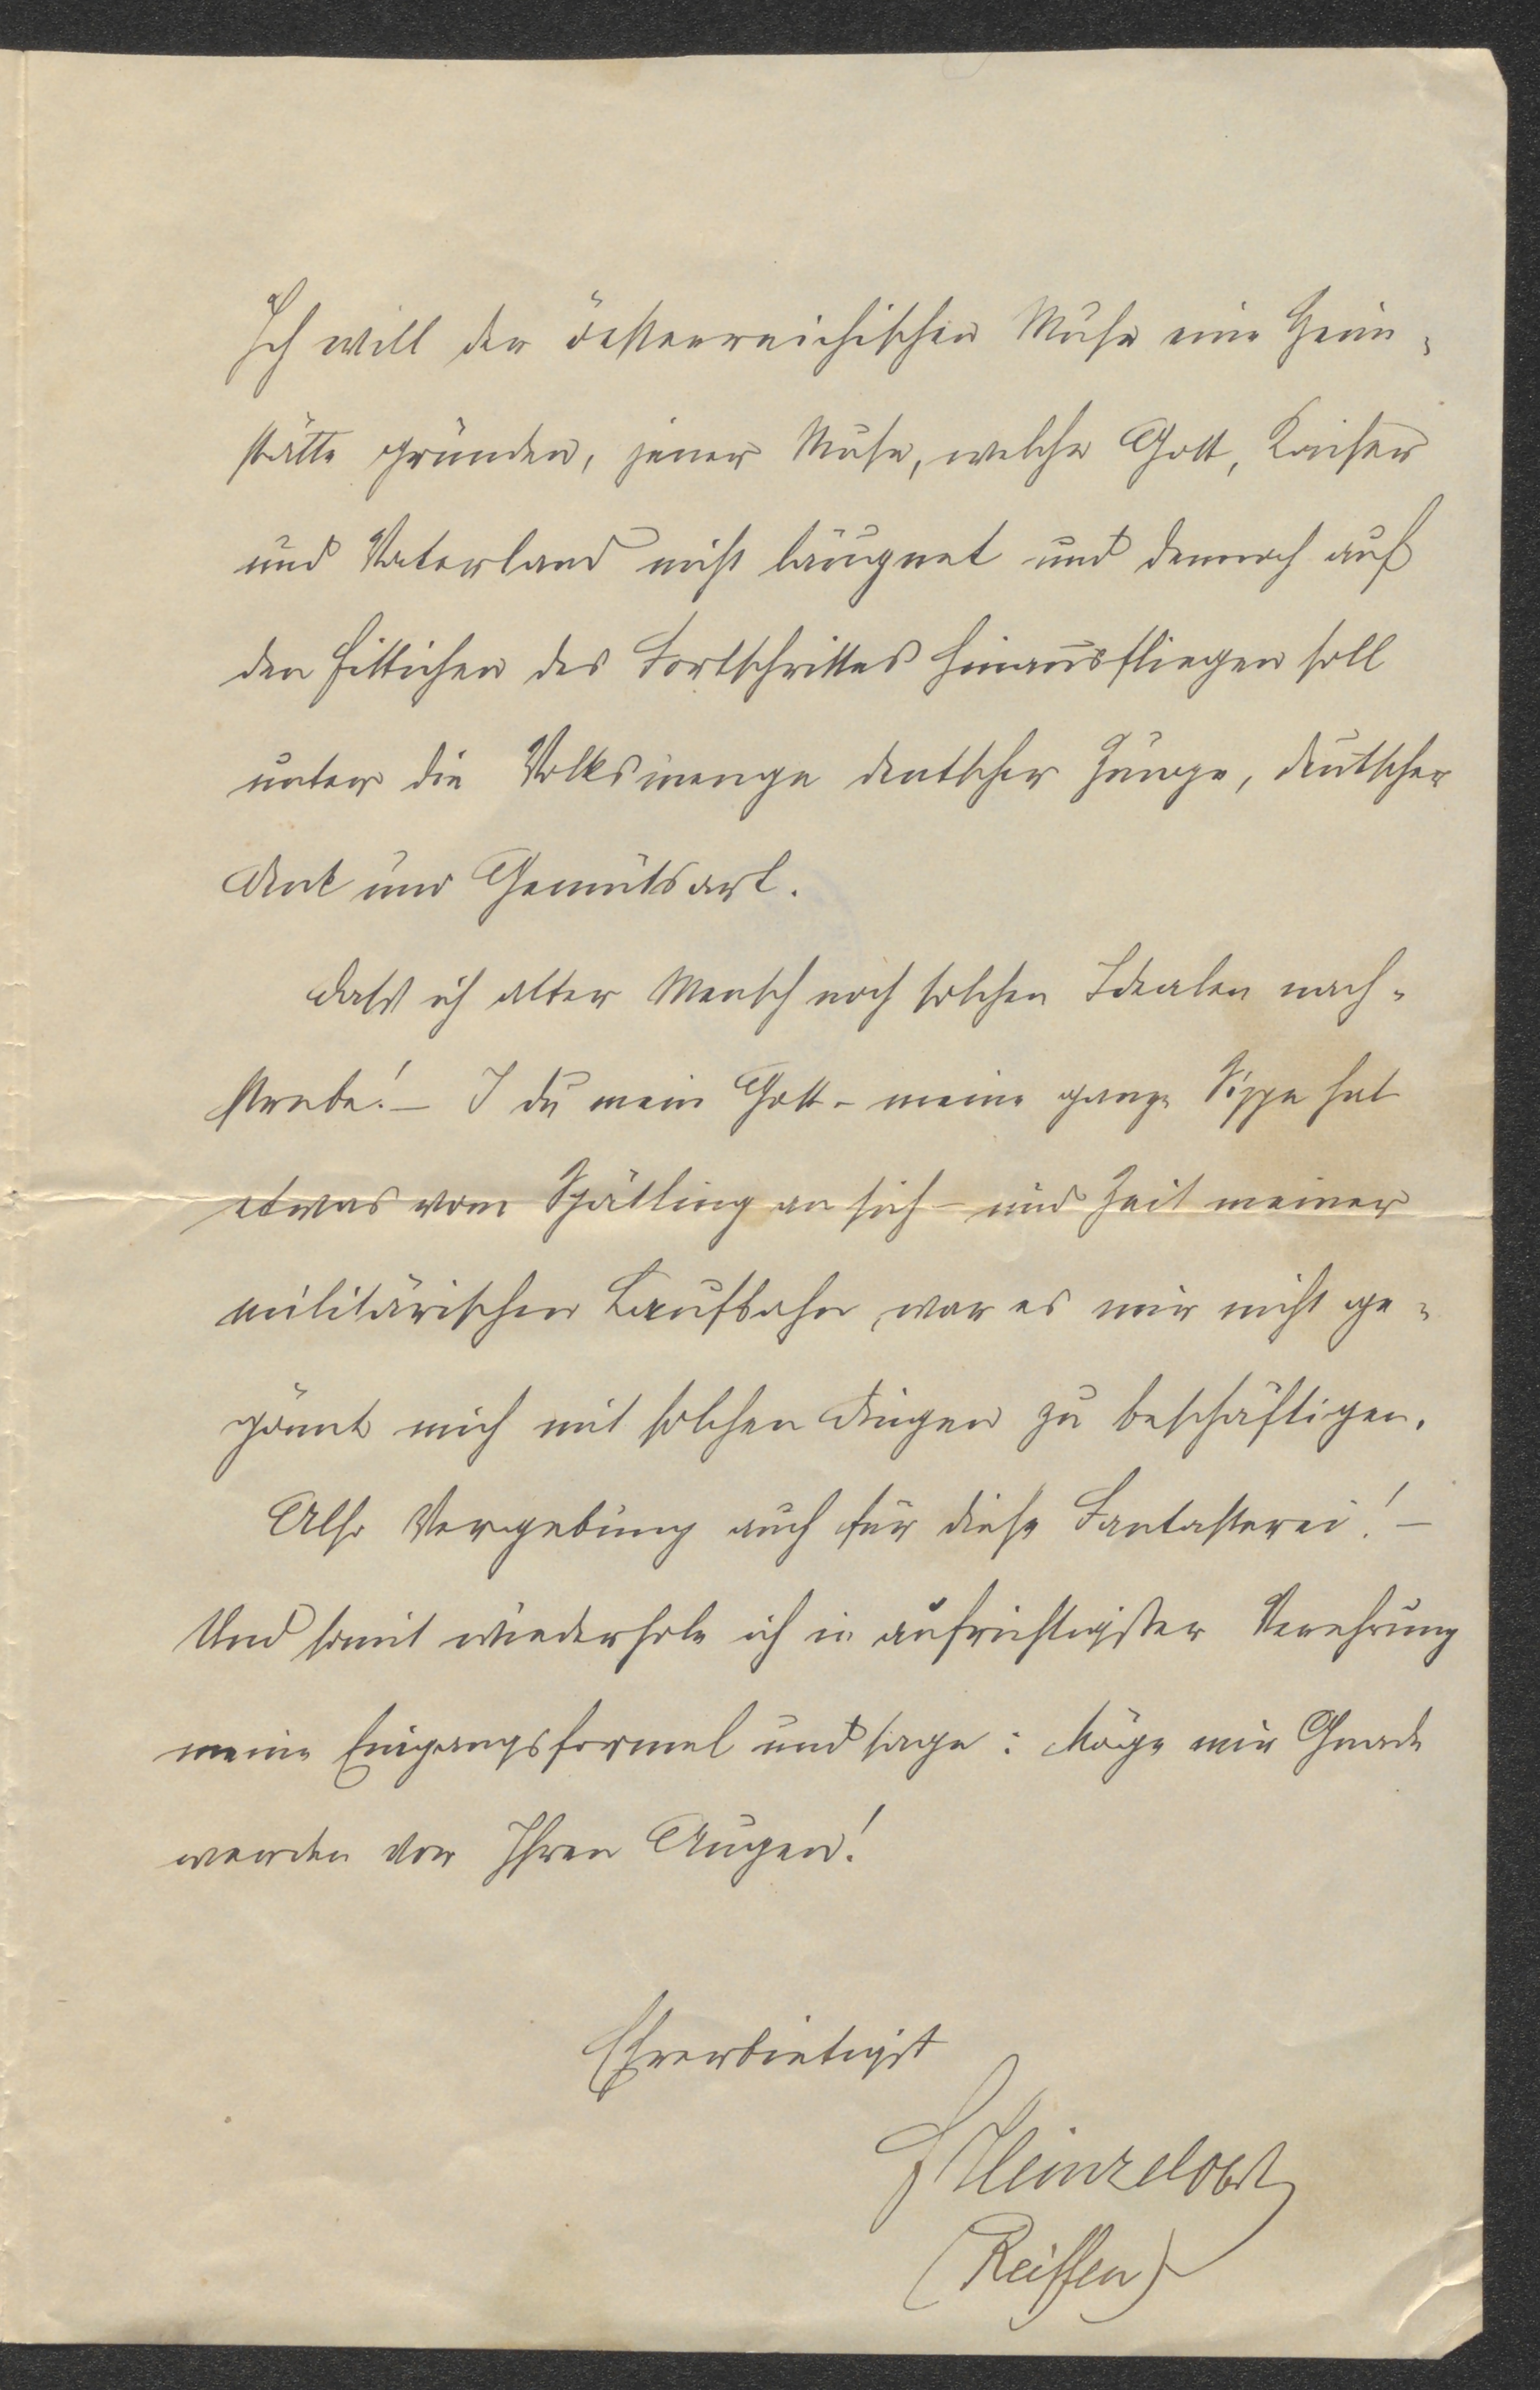 Ich will der österreichischen Muse eine Heim-
stätte gründen, jener Muse, welche Gott, Kaiser
und Vaterland nicht läugnet und dennoch auf
den Fittichen des Fortschrittes hinausfliegen soll
unter die Volksmenge deutscher Zunge, deutscher
Denk und Gemütsart.
Dass ich alter Mensch noch solchen Idealen nach-
strebe! – I du mein Gott – meine ganze Sippe hat
etwas vom Spätling an sich – und Zeit meiner
militärischen Laufbahn, war es mir nicht ge-
gönnt mich mit solchen Dingen zu beschäftigen.
Also Vergebung auch für diese Fantasterei! –
Und somit wiederhole ich in aufrichtigster Verehrung
meine Eingangsformel und sage: Möge mir Gnade
werden vor Ihren Augen!
Ehrerbietigst
(Reiffen)